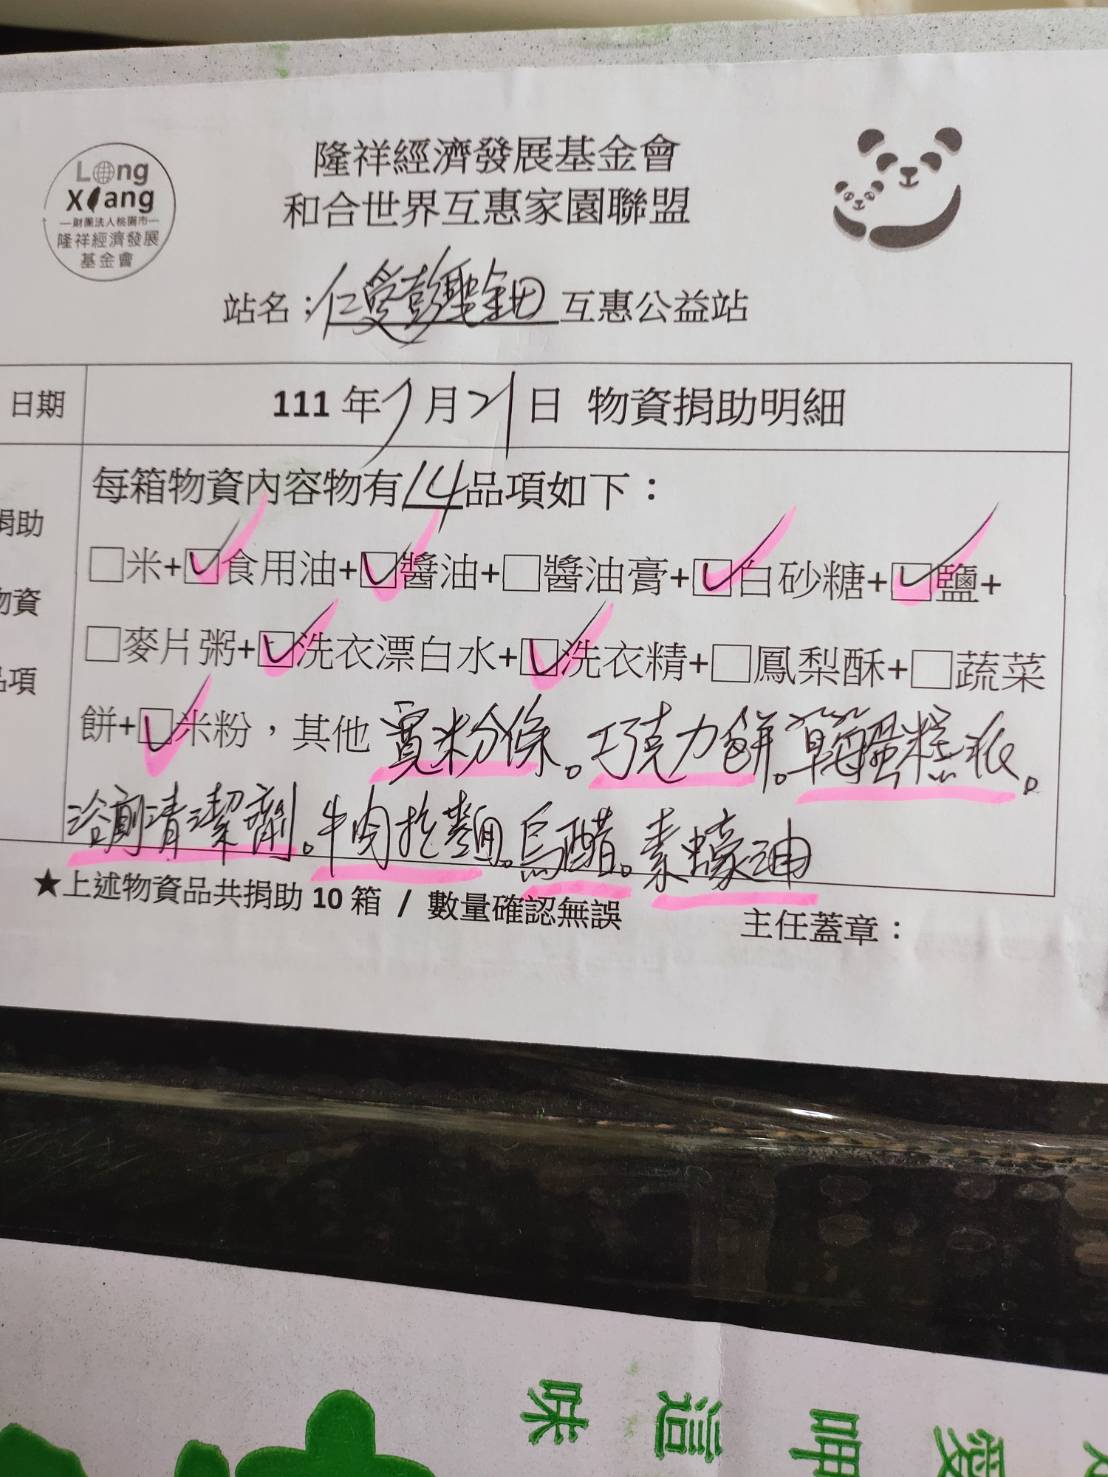 Long
Xiang
財團法人桃園市
隆祥經濟發展
基金會
隆祥經濟發展基金會
和合世界互惠家園聯盟
站名：仁愛彭聖鈿互惠公益站
日期 111 年 7 月 21 日 物資捐助明細
捐助
物資
品項
每箱物資內容物有 14 品項如下：
□米+☑食用油+☑醬油+□醬油膏+☑白砂糖+☑鹽+
□麥片粥+☑洗衣漂白水+☑洗衣精+□鳳梨酥+□蔬菜
餅+☑米粉，其他 寬粉條。巧克力餅。蛋糕
浴廁清潔劑。牛肉拉麵。烏醋。素蠔油
★上述物資品共捐助 10 箱 / 數量確認無誤 主任蓋章：
味 這 呷 愛